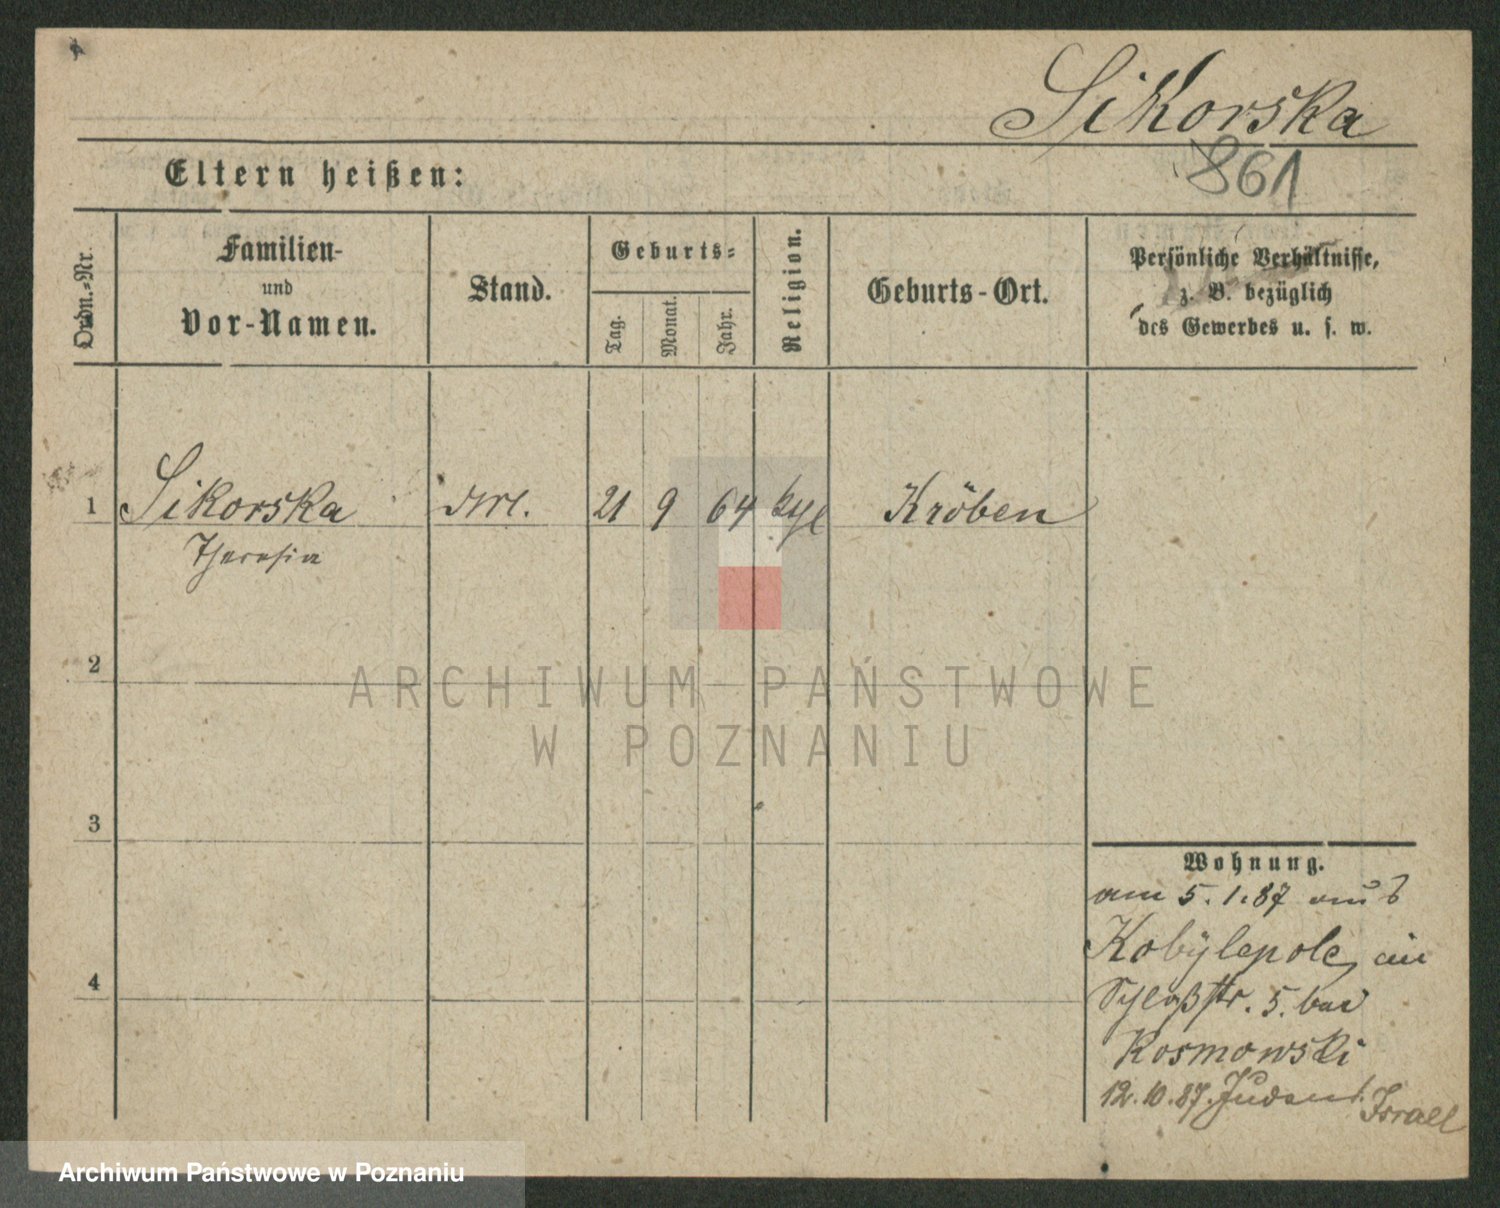 Sikorska
861
Eltern heißen:
Ordn.-Nr.
Familien-
und
Vor-Namen.
Stand.
Geburts-
Tag.
Monat.
Jahr.
Religion.
Geburts-Ort.
Persönliche Verhältnisse,
z. B. bezüglich
des Gewerbes u. s. w.
1 Sikorska 21 9 64 Kröben
Theresia
2
ARCHIWUM PAŃSTWOWE
W POZNANIU
3
4
Wohnung.
am 5.1.87 aus
Kobylepole, in
Schloßstr. 5. bei
Kosmowski
12.10.87. Israel
Archiwum Państwowe w Poznaniu